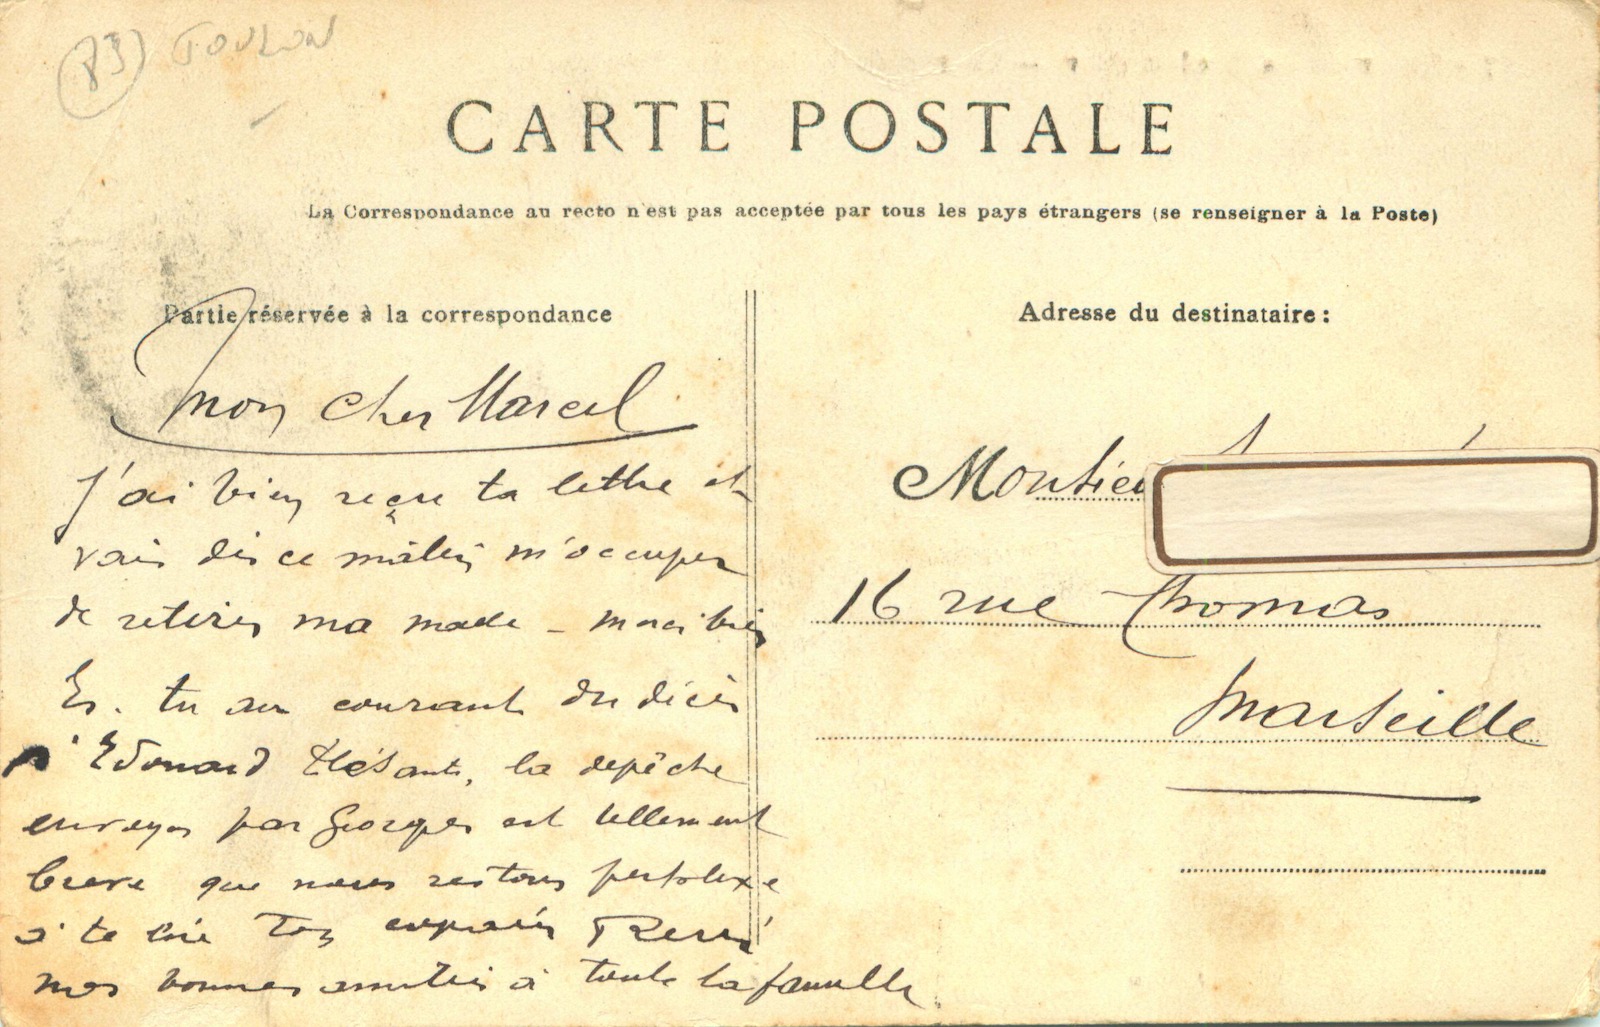 (83) TOULON
CARTE POSTALE
La Correspondance au recto n'est pas acceptée par tous les pays étrangers (se renseigner à la Poste)
Partie réservée à la correspondance
Adresse du destinataire :
mon cher Marcel
J'ai bien reçu ta lettre et
vais dès ce matin m'occuper
de retirer ma – merci bien
Es-tu au courant du décès
d'Edouard la depêche
envoyée par Georges est tellement
breve que nous restons perplexe
à te lire Ton René
mes bonnes amitiés à toute la famille
Monsieu
16 rue Thomas
Marseille